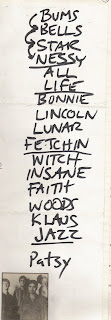 BUMS
BELLS
STAR
NESSY
ALL
LIFE
BONNIE
LINCOLN
LUNAR
FETCHIN
WITCH
INSANE
FAITH
WOODS
KLAUS
JAZZ
Patsy